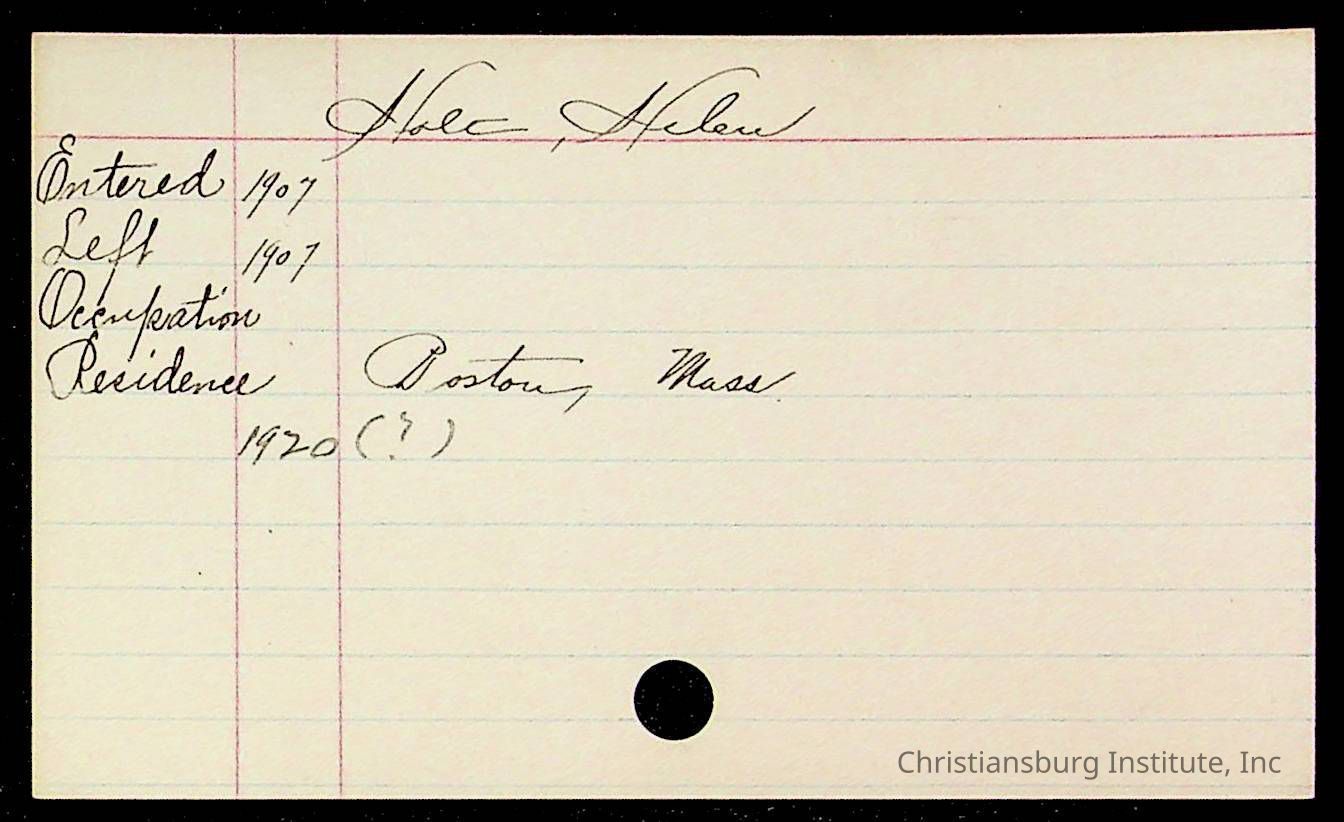 Holt, Helen
Entered 1907
Left 1907
Occupation
Residence Boston, Mass.
1920 (?)
Christiansburg Institute, Inc